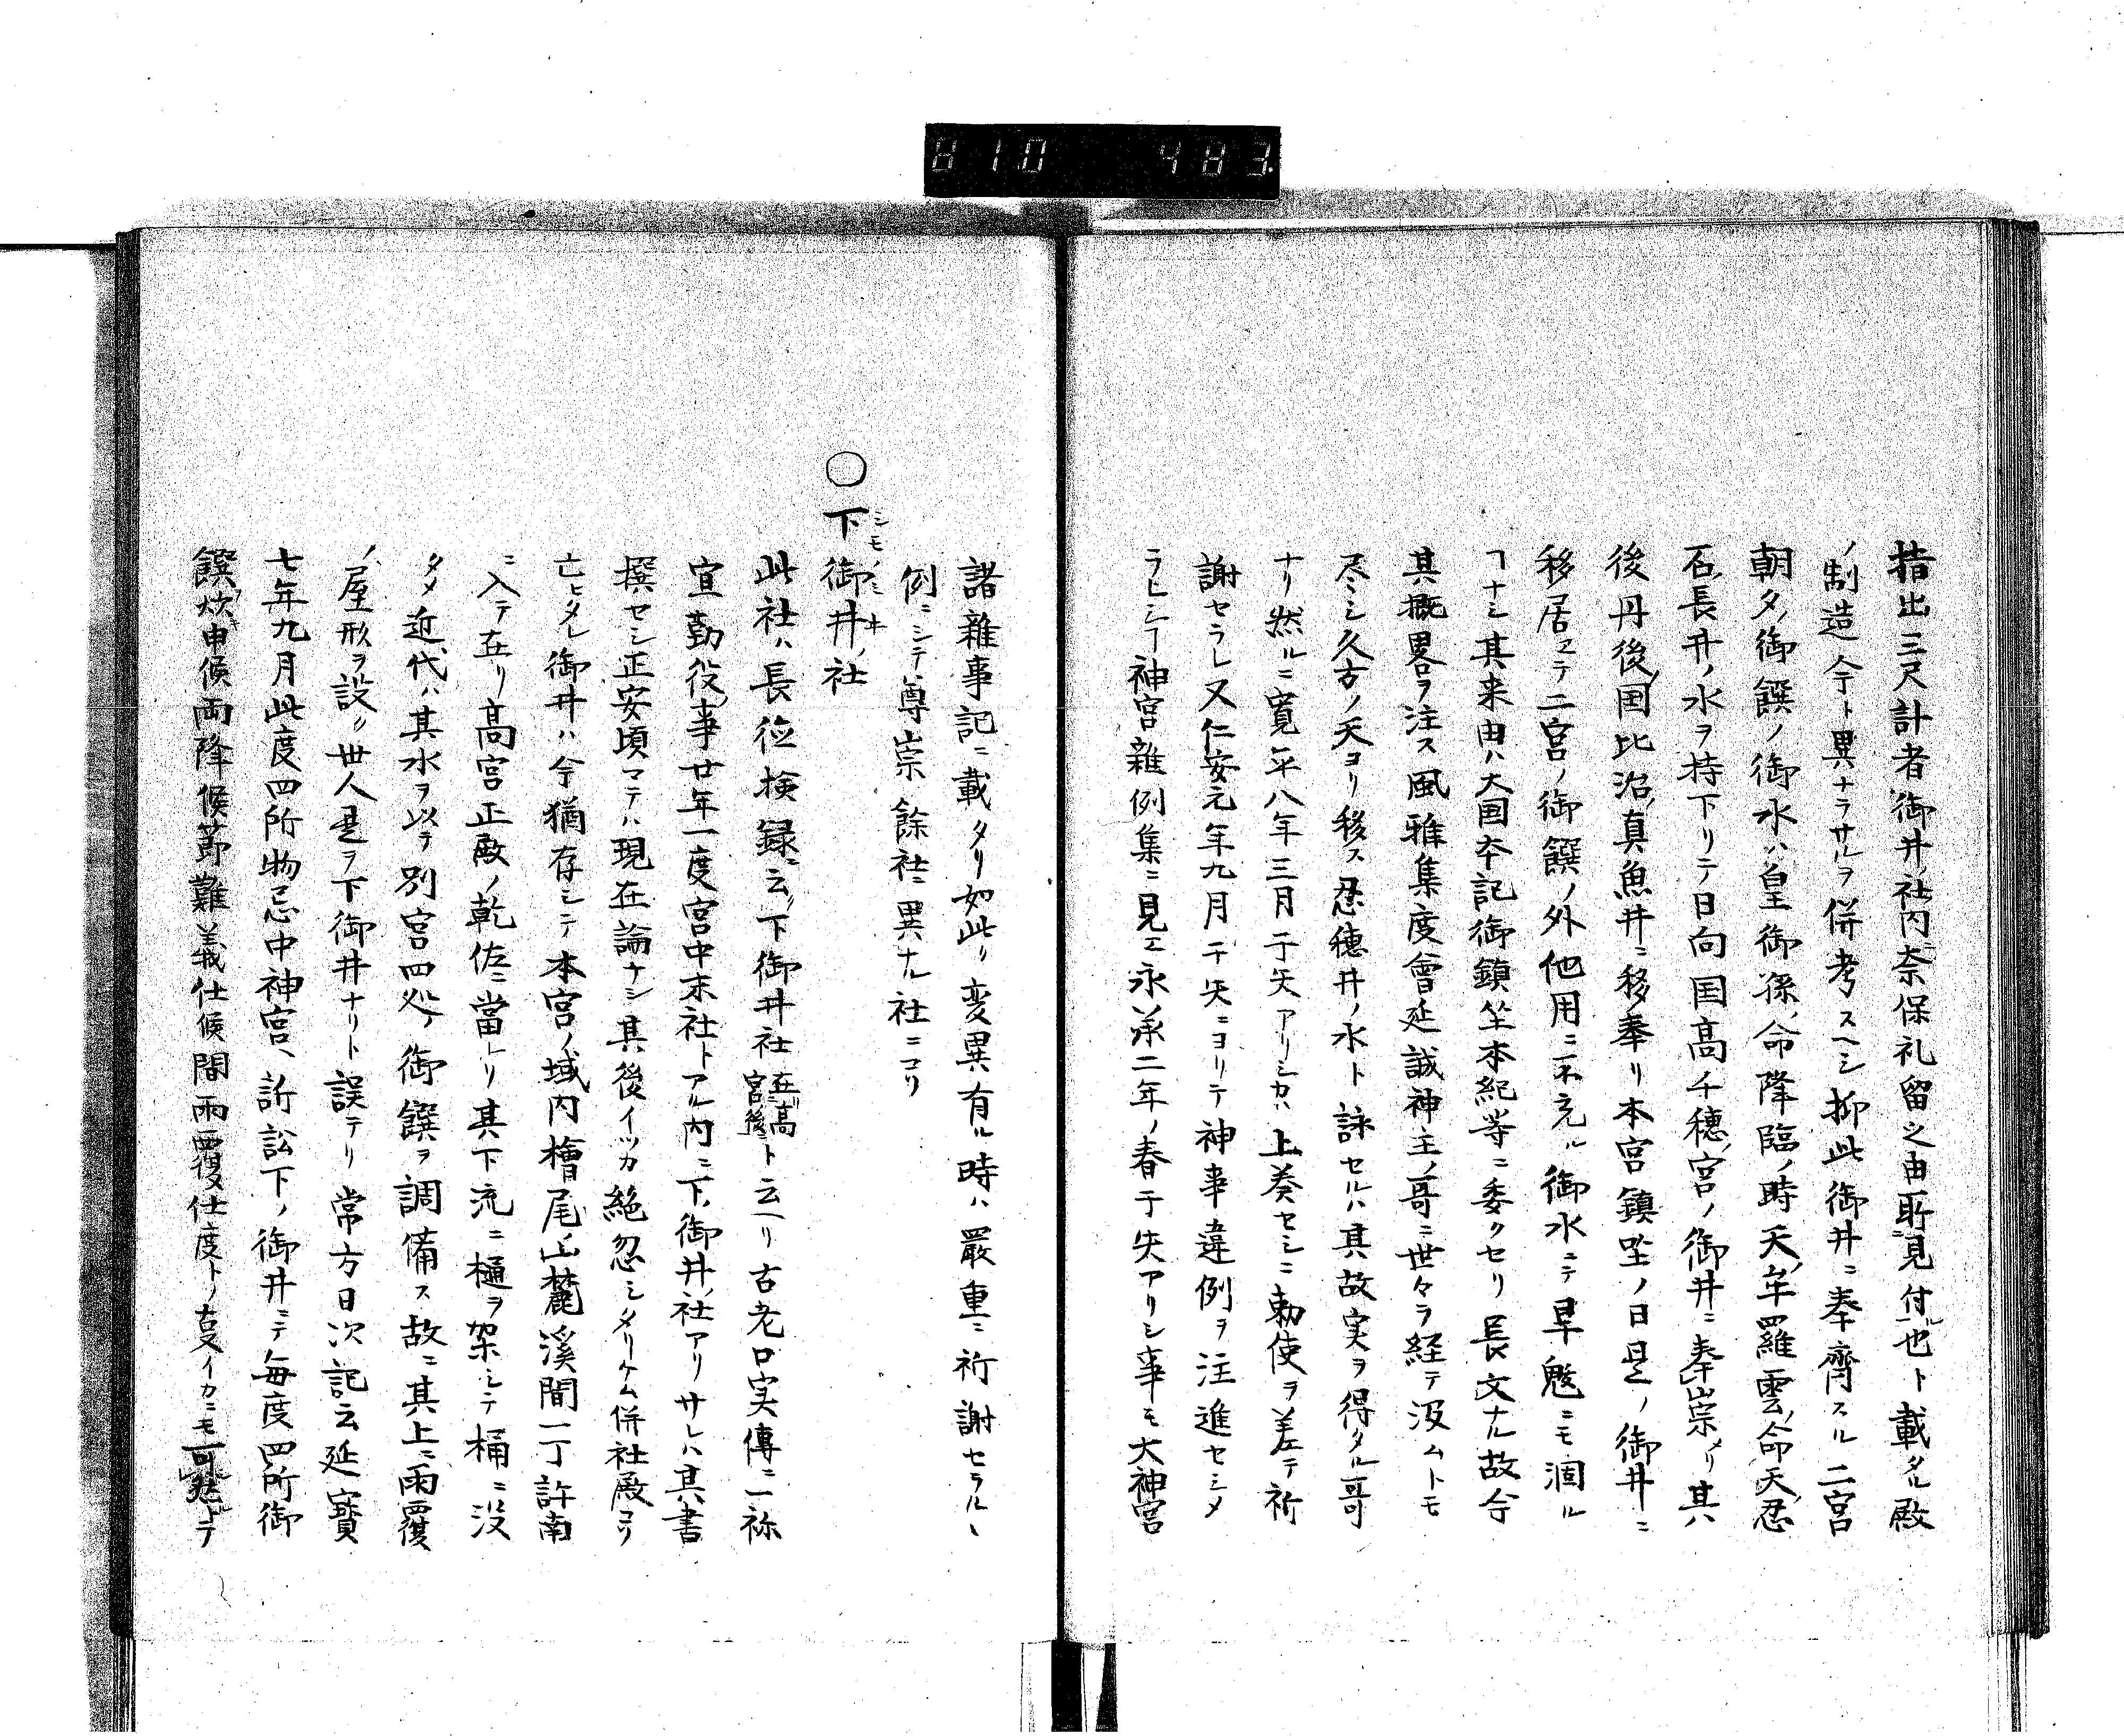 810 483
指出三尺計者御井ノ社内ニ奈保礼留之由所見付ル也ト載タル殿
ノ制造今ト異ナラサルヲ併考スヘシ抑此御井ニ奉齋スル二宮
朝夕ノ御饌ノ御水ハ皇御孫ノ命降臨ノ時天ノ牟羅雲ノ命天ノ忍
石ノ長井ノ水ヲ持下リテ日向国高千穂ノ宮ノ御井ニ奉崇メリ其
後丹後ノ国比沼ノ真魚井ニ移ノ奉リ本宮鎮坐ノ日是ノ御井ニ
移居ヱテ二宮ノ御饌ノ外他用ニ不充ル御水ニテ旱魃ニモ涸ル
ヿナシ其来由ハ大同本記御鎮坐本紀等ニ委クセリ長文ナル故今
其概畧ヲ注ス風雅集度會延誠神主ノ哥ニ世々ヲ経テ汲ムトモ
尽シ久方ノ天ヨリ移ス忍穂井ノ水ト詠セルハ其故実ヲ得タル哥
ナリ然ルニ寛平八年三月于失アリシカハ上奏セシニ勅使ヲ差テ祈
謝セラレ又仁安元年九月于失ニヨリテ神事違例ヲ注進セシメ
ラヒシヿ神宮雜例集ニ見エ永承二年ノ春于失アリシ事モ大神宮
諸雜事記ニ載タリ如此リ変異有ル時ハ嚴重ニ祈謝セラルヽ
例ニシテ尊崇餘社ニ異ナル社ニコリ
○下御井ノ社
シモノミヰ
此社ハ長徳検録ニ云ク下御井社在高宮後ト云ヘリ古老口実傳ニ一祢
宜勤役ノ事廿年一度宮中末社トアル内ニ下ノ御井ノ社アリサレハ其書
撰セシ正安頃マテハ現在論ナシ其後イツカ絶忽シタリケム併社殿コソ
亡ヒタレ御井ハ今猶存シテ本宮ノ域内檜尾山麓溪間一丁許南
ニ入テ在リ高宮正殿ノ乾佐ニ當レリ其下流ニ樋ヲ架シテ桶ニ没
タメ近代ハ其水ヲ以テ別宮四処ノ御饌ヲ調備ス故ニ其上ニ雨覆
ノ屋形ヲ設ク世人是ヲ下御井ナリト誤テリ常方日次記云延寳
七年九月此度四所物忌中神宮ヘ訴訟下ノ御井ニテ毎度四所御
饌炊申候雨降候節難義仕候間雨覆仕度トノ支イカニモ可然トテ